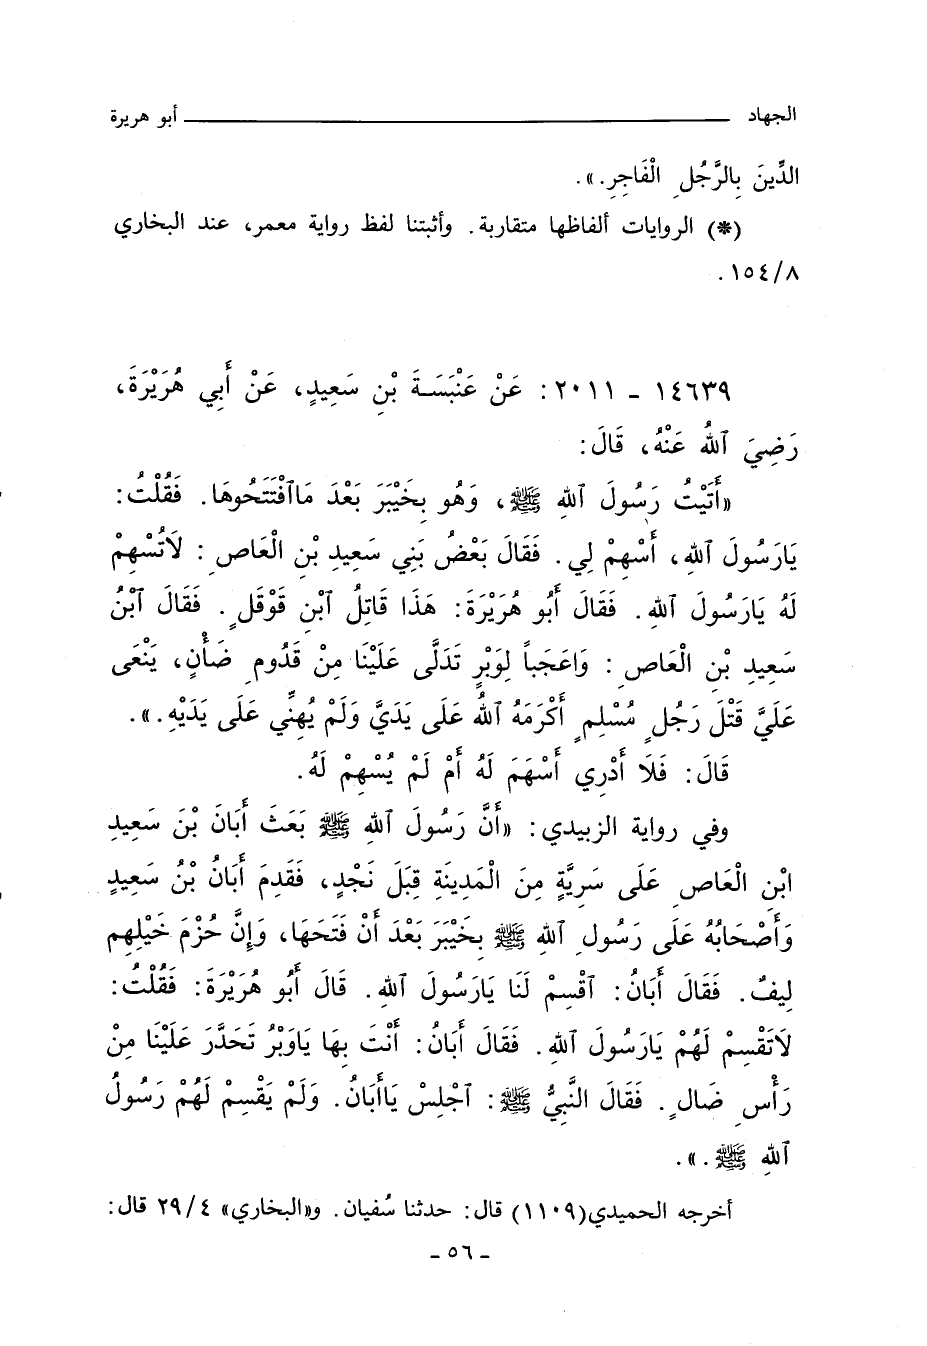 الجهاد ــــــــــــــــــــ أبو هريرة
الدِّينَ بِالرَّجُلِ الْفَاجِرِ.».
(*) الروايات ألفاظها متقاربة. وأثبتنا لفظ رواية معمر، عند البخاري
١٥٤/٨.
١٤٦٣٩ - ٢٠١١: عَنْ عَنْبَسَةَ بْنِ سَعِيدٍ، عَنْ أَبِي هُرَيْرَةَ،
رَضِيَ ٱللهُ عَنْهُ، قَالَ:
«أَتَيْتُ رَسُولَ ٱللهِ ﷺ، وَهُو بِخَيْبَرَ بَعْدَ مَاٱفْتَتَحُوهَا. فَقُلْتُ:
يَارَسُولَ ٱللهِ، أَسْهِمْ لِي. فَقَالَ بَعْضُ بَنِي سَعِيدِ بْنِ الْعَاصِ: لَاتُسْهِمْ
لَهُ يَارَسُولَ ٱللهِ. فَقَالَ أَبُو هُرَيْرَةَ: هَذَا قَاتِلُ ٱبْنِ قَوْقَلٍ. فَقَالَ ٱبْنُ
سَعِيدِ بْنِ الْعَاصِ: وَاعَجَباً لِوَبْرٍ تَدَلَّى عَلَيْنَا مِنْ قَدُومِ ضَأْنٍ، يَنْعَى
عَلَيَّ قَتْلَ رَجُلٍ مُسْلِمٍ أَكْرَمَهُ ٱللهُ عَلَى يَدَيَّ وَلَمْ يُهِنِّي عَلَى يَدَيْهِ.».
قَالَ: فَلَا أَدْرِي أَسْهَمَ لَهُ أَمْ لَمْ يُسْهِمْ لَهُ.
وفي رواية الزبيدي: «أَنَّ رَسُولَ ٱللهِ ﷺ بَعَثَ أَبَانَ بْنَ سَعِيدِ
ابْنِ الْعَاصِ عَلَى سَرِيَّةٍ مِنَ الْمَدِينَةِ قِبَلَ نَجْدٍ، فَقَدِمَ أَبَانُ بْنُ سَعِيدٍ
وَأَصْحَابُهُ عَلَى رَسُولِ ٱللهِ ﷺ بِخَيْبَرَ بَعْدَ أَنْ فَتَحَهَا، وَإِنَّ حُزْمَ خَيْلِهِم
لِيفٌ. فَقَالَ أَبَانُ: ٱقْسِمْ لَنَا يَارَسُولَ ٱللهِ. قَالَ أَبُو هُرَيْرَةَ: فَقُلْتُ:
لَاتَقْسِمْ لَهُمْ يَارَسُولَ ٱللهِ. فَقَالَ أَبَانُ: أَنْتَ بِهَا يَاوَبْرُ تَحَدَّرَ عَلَيْنَا مِنْ
رَأْسِ ضَالٍ. فَقَالَ النَّبِيُّ ﷺ: ٱجْلِسْ يَاأَبَانُ. وَلَمْ يَقْسِمْ لَهُمْ رَسُولُ
ٱللهِ ﷺ.».
أخرجه الحميدي(١١٠٩) قال: حدثنا سُفيان. و«البخاري» ٢٩/٤ قال:
- ٥٦ -